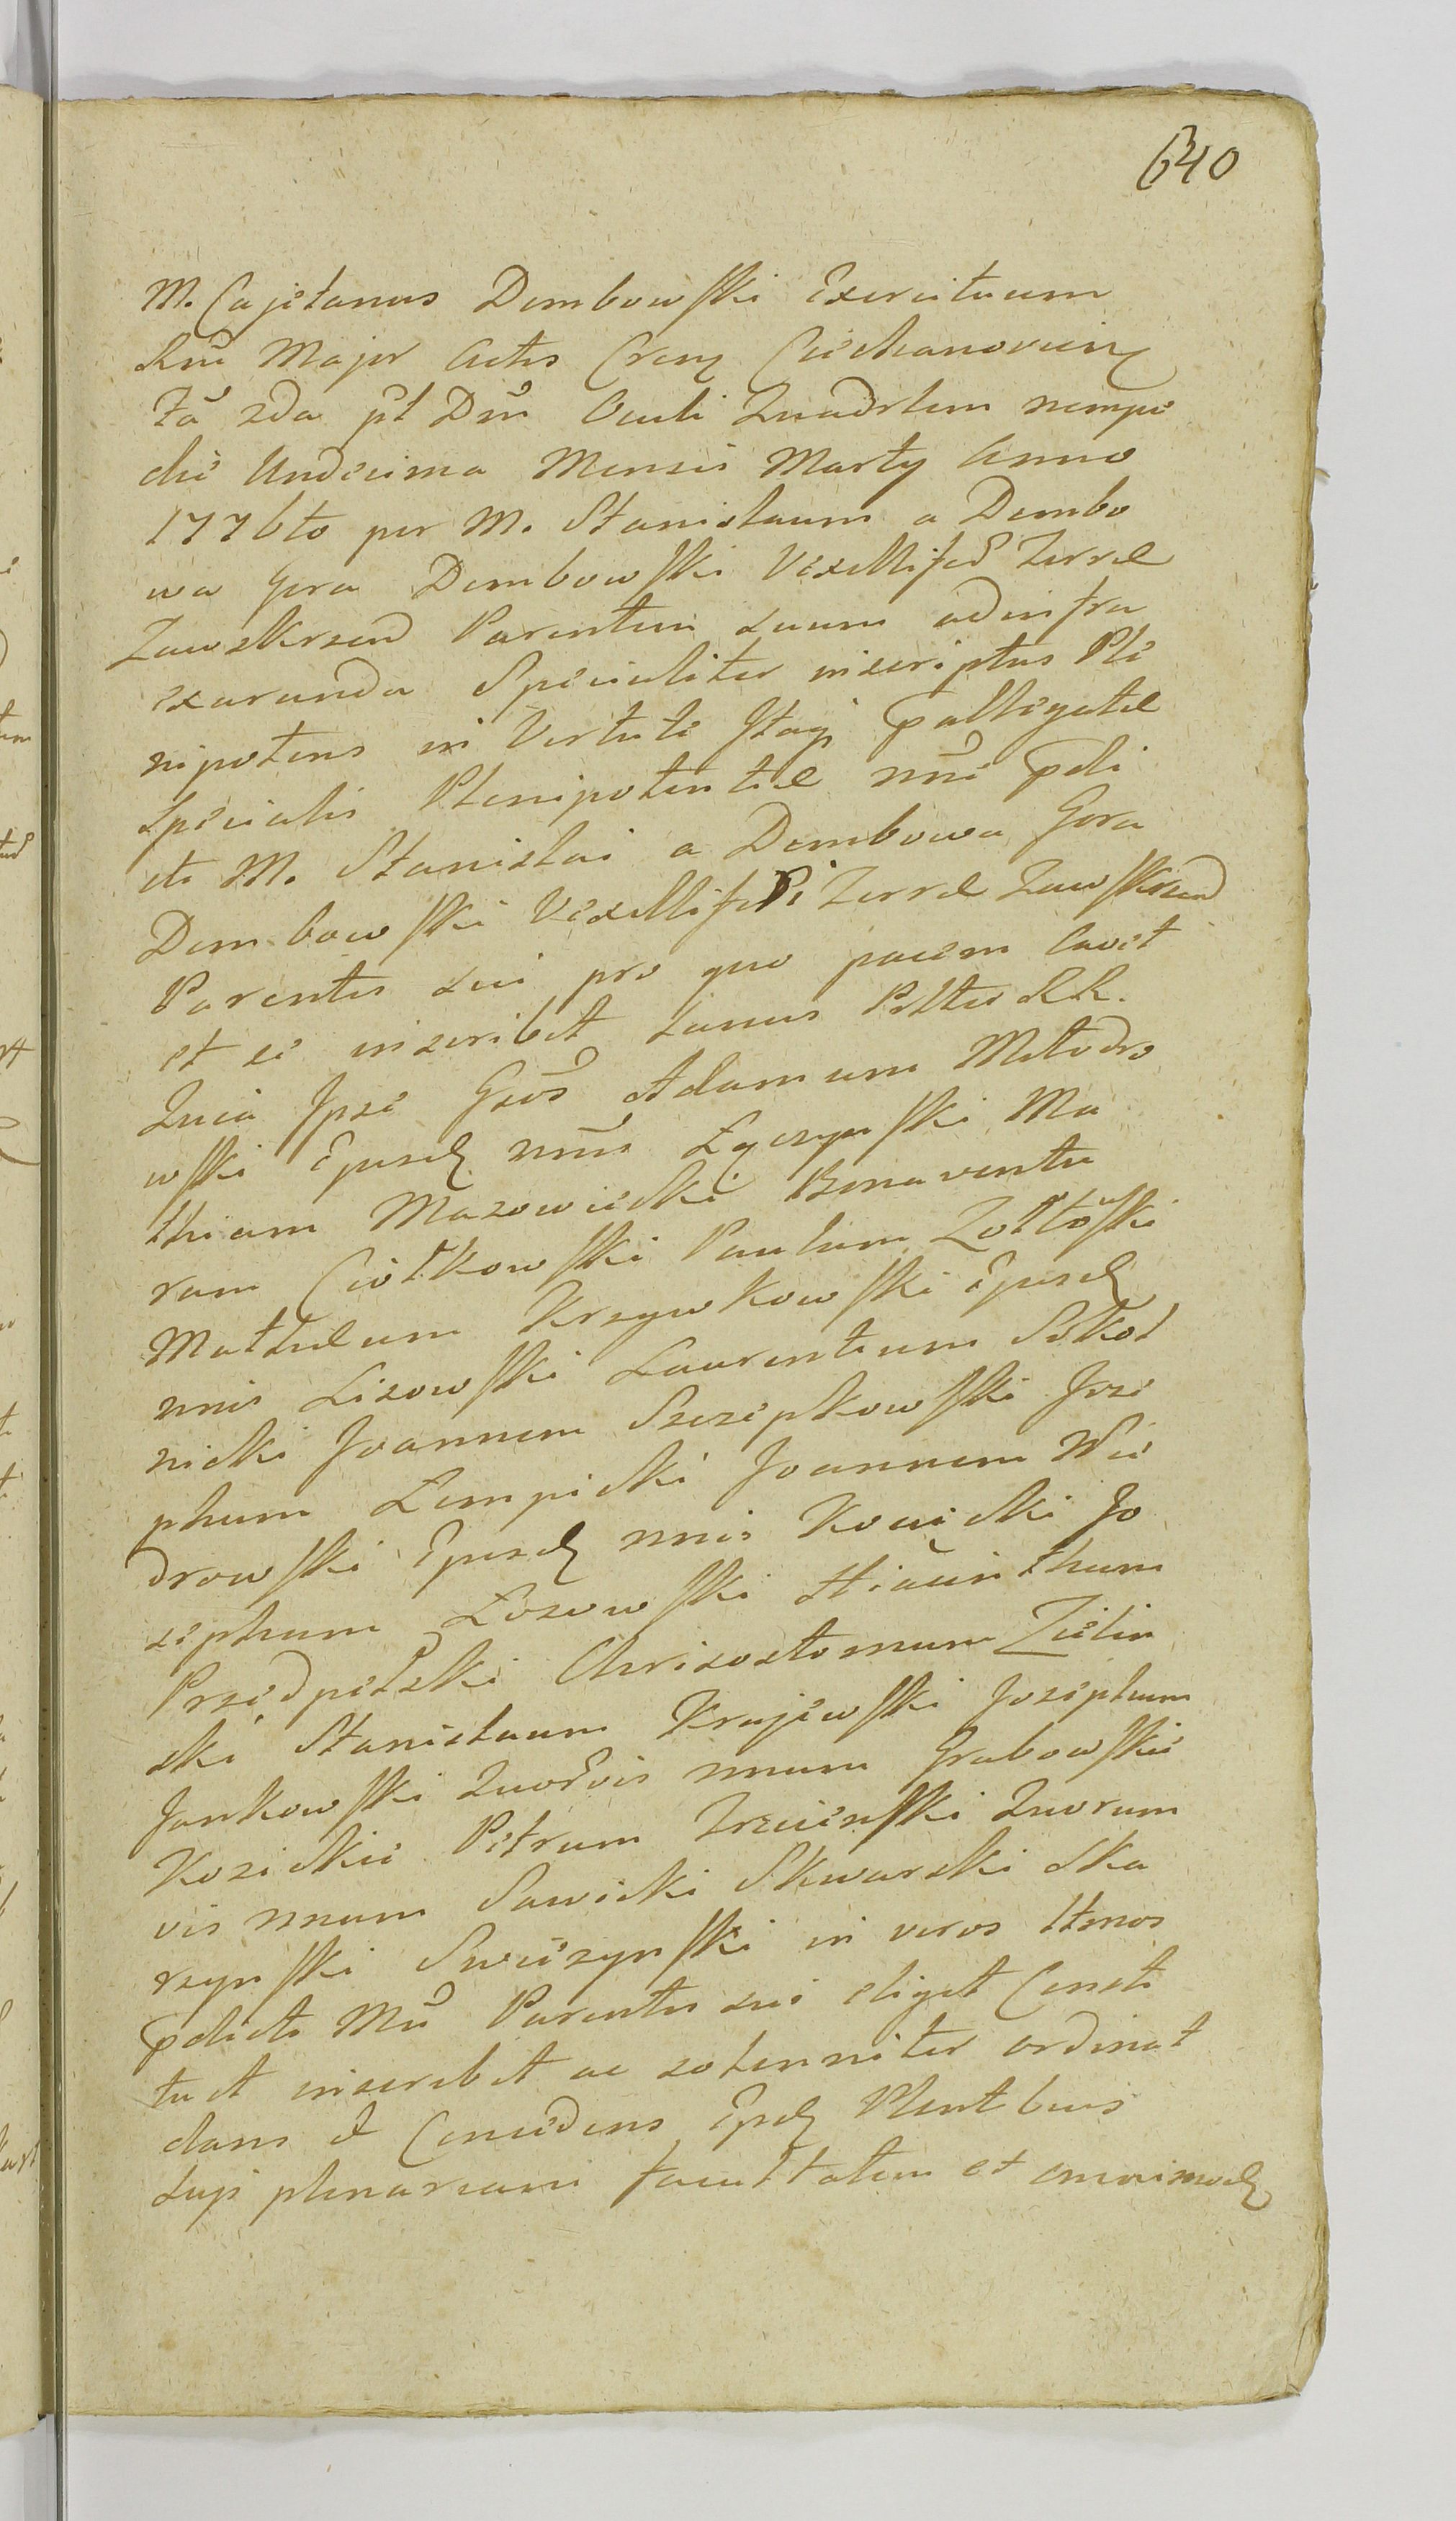 640
M. Cajetanus Dembowski Exercituum
Rni Major Actis Cren Ciechanovien
fã 2da pt Dñi Oculi Quadrlem nempe
die Undecima Mensis Martÿ Anno
1776to per M. Stanislaum a Dembo
wa Gora Dembowski Vexillifer Terræ
Zawskrzen Parentem suum ad infra
exaranda Specialiter inscriptus Ple
nipotens in Vertute pallegatæ
specialis Plenipotentiæ nñe pdi
cti M. Stanislai a Dembowa Gora
Dembowski Vexilliferi Terræ Zawskrzen
Parentis sui pro quo pacem Cavet
et se inscribit sanus RR.
Quia Ipse Gsos Adamum Młodzo
wski Eund nnis Łączynski Ma
thiam Mazowiecki Bonaventu
ram Ciółkowski Paulum Żółtowski
Mathæum Krzywkowski Eund
nnis Lisowski Laurentium Sokol
nicki Joannem Szczepkowski Jose
phum Lempicki Joannem Wie
drowski Eund nnis Kowicki Jo
sephum Łozowski Hiacinthum
Przedpełski Chrisostomum Zielin
ski Stanislaum Krajewski Josephum
Jankowski Quosvis nnum Grabowskie
Kozickie Petrum Trzcienski Quorum
vis nnum Sawicki Skwarski Ska
rzynski Swiezynski in veros Ttmos
pdicti Mci Parentis sui eliget Consti
tuet inscribet ac solenniter ordinat
dans et Concedens Eisd Plentbus
suis plenariam facultatem et omnimod